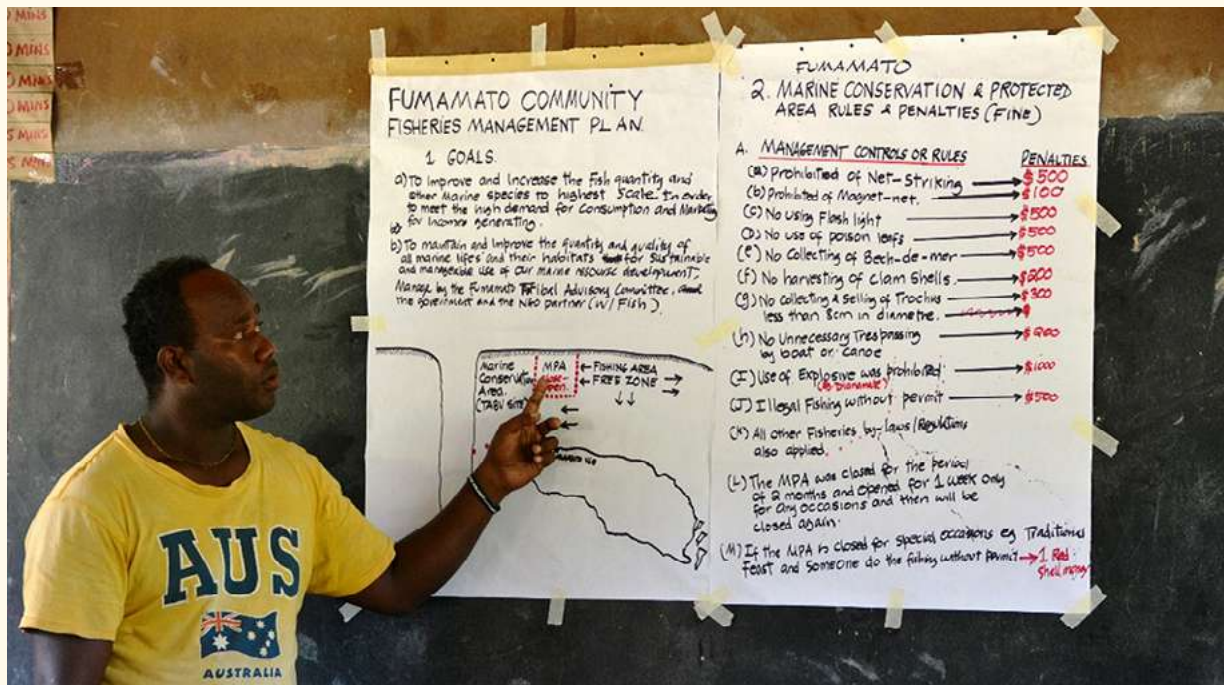 0 MINS
0 MINS
0 MINS
0 MINS
5 MINS
MINS
FUMAMATO COMMUNITY
FISHERIES MANAGEMENT PLAN.
1 GOALS.
a) To improve and Increase the Fish quantity and
other Marine species to highest Scale. In order
to meet the high demand for Consumption and Marketing
for Incomes generating.
b) To maintain and Improve the quantity and quality of
all marine lifes and their habitats for Sustainable
and manageable use of our marine resource development.
Manage by the Fumamato Tribal Advisory Committee,
the government and the NGO partner (W/Fish).
Marine
Conservation
Area.
(TABU SITE)
MPA
open.
← FISHING AREA
← FREE ZONE →
FUMAMATO
2. MARINE CONSERVATION & PROTECTED
AREA RULES & PENALTIES (FINE)
A. MANAGEMENT CONTROLS OR RULES PENALTIES
(a) Prohibited of Net-Striking → $500
(b) Prohibited of Magnet-net. → $100
(c) No using Flash light → $500
(D) No use of poison leafs → $500
(e) No Collecting of Bech-de-mer → $500
(f) No harvesting of Clam Shells. → $200
(g) No Collecting & Selling of Trochus → $300
less than 8cm in diametre.
(h) No Unnecessary Trespassing → $200
by boat or canoe
(I) Use of Explosive was prohibited → $1000
(J) Illegal Fishing without permit → $500
(K) All other Fisheries by-laws/Regulations
also applied.
(L) The MPA was closed for the period
of 2 months and opened for 1 week only
for any occasions and then will be
closed again.
(M) If the MPA is closed for special occasions eg Traditional
Feast and Someone do the fishing without permit → 1 Red
Shell money
AUS
AUSTRALIA